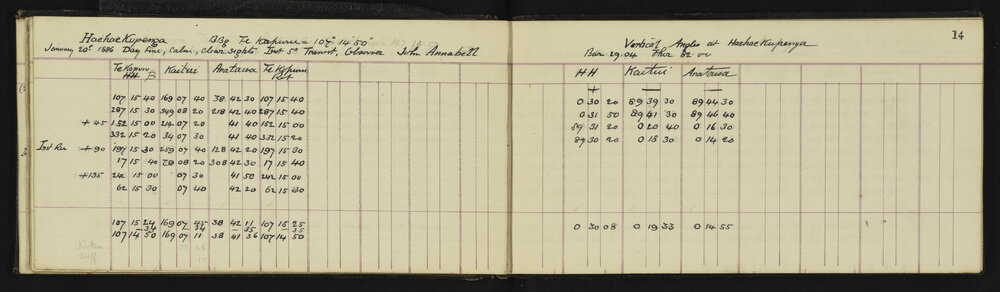 Haehaekupenga BBg Te Kapuru = 107° 14' 50"
January 20th 1886 Day fine, calm, clear sights Inst 5" Transit, Observer John Annabell
Te Kapuru Kaitui Aratawa Te Kapuru
HH
107 15 40 169 07 40 38 42 30 107 15 40
287 15 30 349 08 20 218 42 40 287 15 40
+45 152 15 00 24 07 20 41 40 152 15 00
332 15 20 34 07 30 41 40 332 15 20
Inst Rev +90 197 15 30 259 07 40 128 42 20 197 15 30
17 15 40 79 08 20 308 42 30 17 15 40
+135 242 15 00 07 30 41 50 242 15 00
62 15 30 07 40 42 20 62 15 30
107 15 24 169 07 45 38 42 11 107 15 25
34 34 35 35
107 14 50 169 07 11 38 41 36 107 14 50
14
Vertical Angles at Haehaekupenga
Bar 29.04 Ther 82.00
HH Kaitui Aratawa
0 30 20 89 39 30 89 44 30
0 31 50 89 41 30 89 46 40
89 31 20 0 20 40 0 16 30
89 30 20 0 18 30 0 14 20
0 30 08 0 19 33 0 14 55